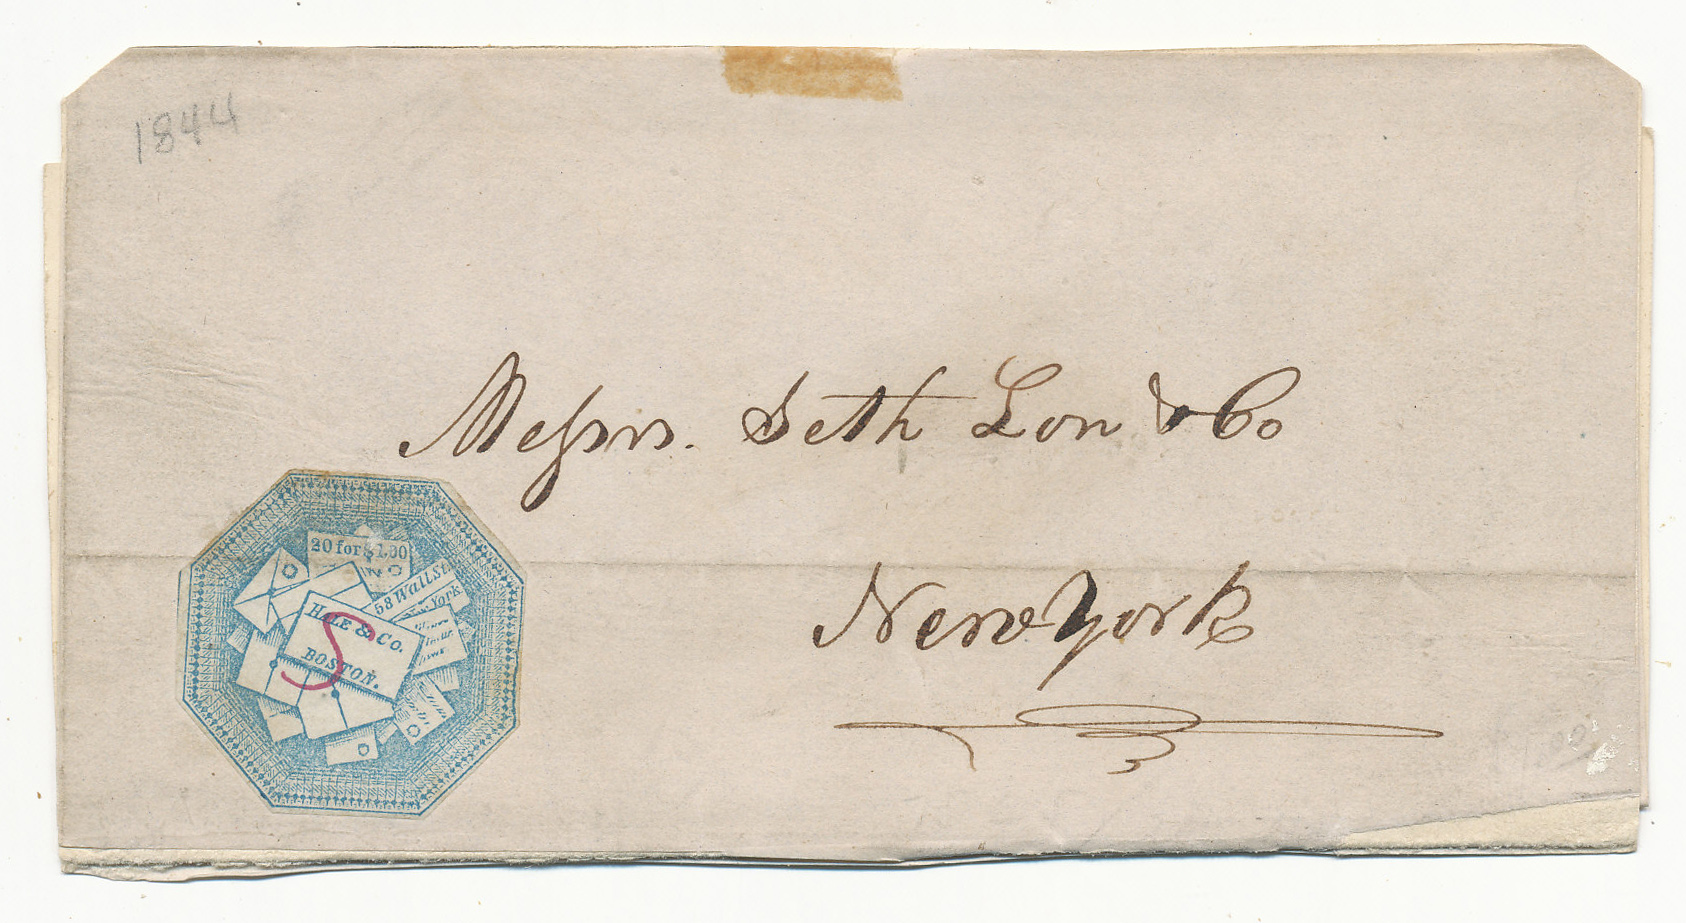 1844
Messrs. Seth Lon & Co
New York
20 for $1.00
58 Wall St.
New York
HALE & CO.
BOSTON.
S